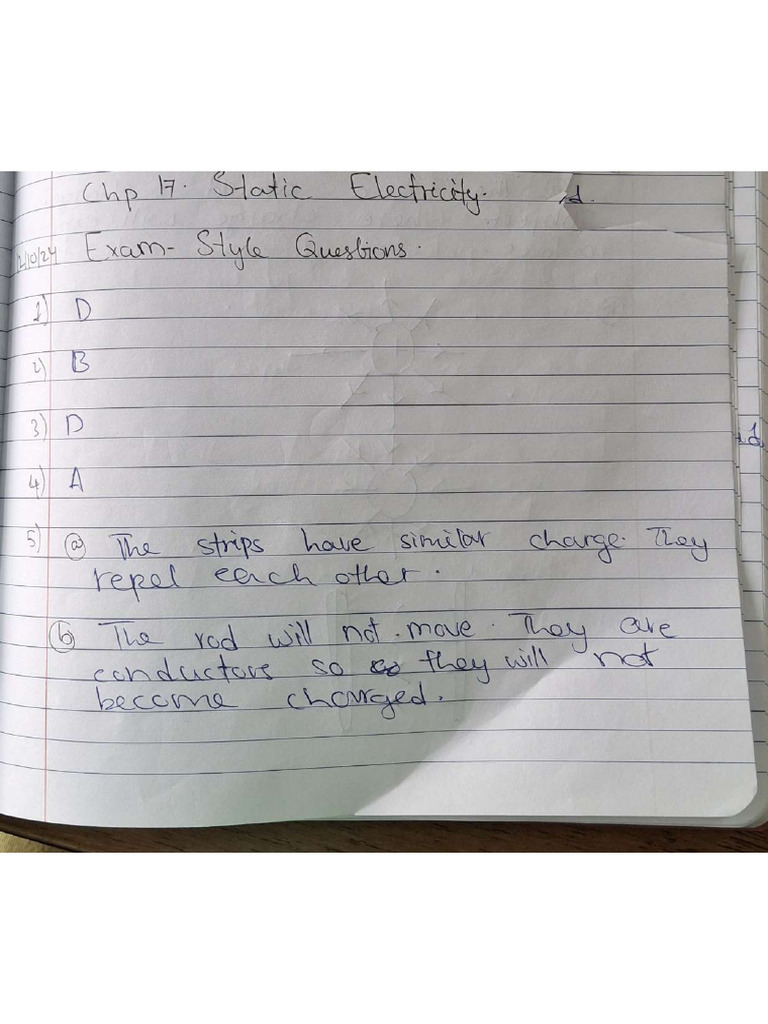 Chp 17. Static Electricity.
Exam-Style Questions.
1) D
2) B
3) D
4) A
5) (a) The strips have similar charge. They
repel each other.
(b) The rod will not move. They are
conductors so they will not
become charged.